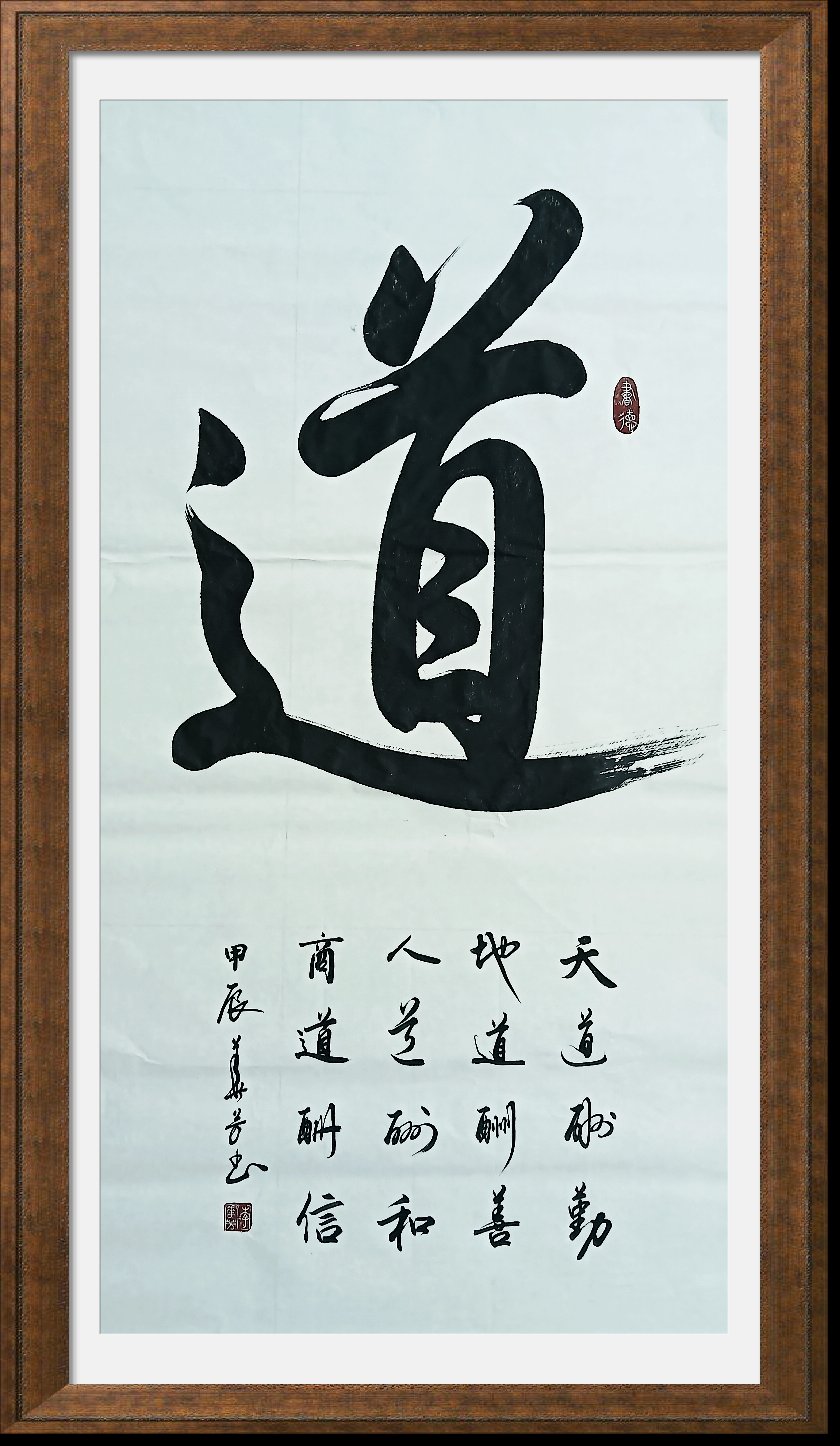 道
書德
天道酬勤
地道酬善
人道酬和
商道酬信
甲辰華芳书